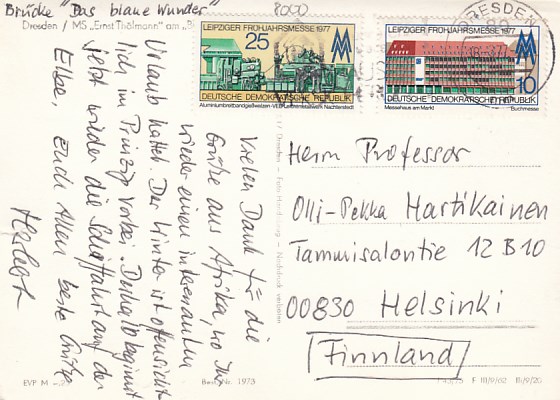 Brücke "Das blaue Wunder"
8020
Dresden / MS „Ernst Thälmann" am
Vielen Dank für die
Grüße aus Afrika, wo Ihr
wieder einen interessanten
Urlaub hattet. Der Winter ist offensicht-
lich im Prinzip vorbei. Denn, so beginnt
jetzt wieder die Schiffahrt auf der
Elbe. Euch Allen beste Grüße
Herbert
LEIPZIGER FRÜHJAHRSMESSE 1977
25
MM
DEUTSCHE DEMOKRATISCHE REPUBLIK
LEIPZIGER FRÜHJAHRSMESSE 1977
MM
10
DEUTSCHE DEMOKRATISCHE REPUBLIK
Messehaus am Markt
Buchmesse
DRESDEN
Herrn Professor
Olli-Pekka Hartikainen
Tammisalontie 12 B10
00830 Helsinki
Finnland
EVP M
Best.-Nr. 1973
F III/9/62 III/9/20